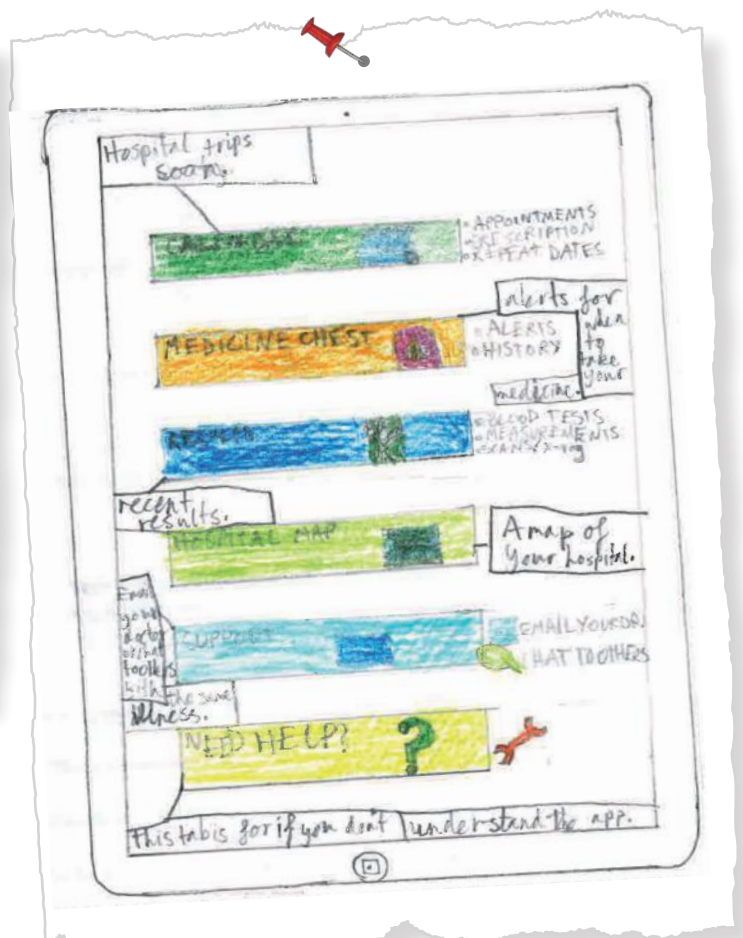 Hospital trips
soon.
CALENDAR
• APPOINTMENTS
• PRESCRIPTION
• REPEAT DATES
alerts for
when
to
take
your
medicine.
MEDICINE CHEST
• ALERTS
• HISTORY
RESULTS
• BLOOD TESTS
• MEASUREMENTS
• SCANS
recent
results.
HOSPITAL MAP
A map of
your hospital.
Email
your
doctor
or chat
to others
with
the same
illness.
SUPPORT
EMAIL YOUR DR
CHAT TO OTHERS
NEED HELP?
?
This tab is for if you don't understand the app.